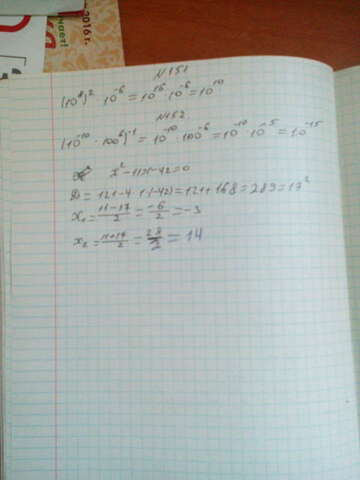 2016 г.
чает!
N 151
(10⁸)² · 10⁻⁶ = 10¹⁶ · 10⁻⁶ = 10¹⁰
N 152
(10⁻¹⁰ · 100⁶)⁻¹ = 10⁻¹⁰ · 100⁻⁶ = 10⁻¹⁰ · 10⁻⁵ = 10⁻¹⁵
x² - 11x - 42 = 0
D = 121 - 4 · 1 · (-42) = 121 + 168 = 289 = 17²
x₁ = 11-17/2 = -6/2 = -3
x₂ = 11+17/2 = 28/2 = 14